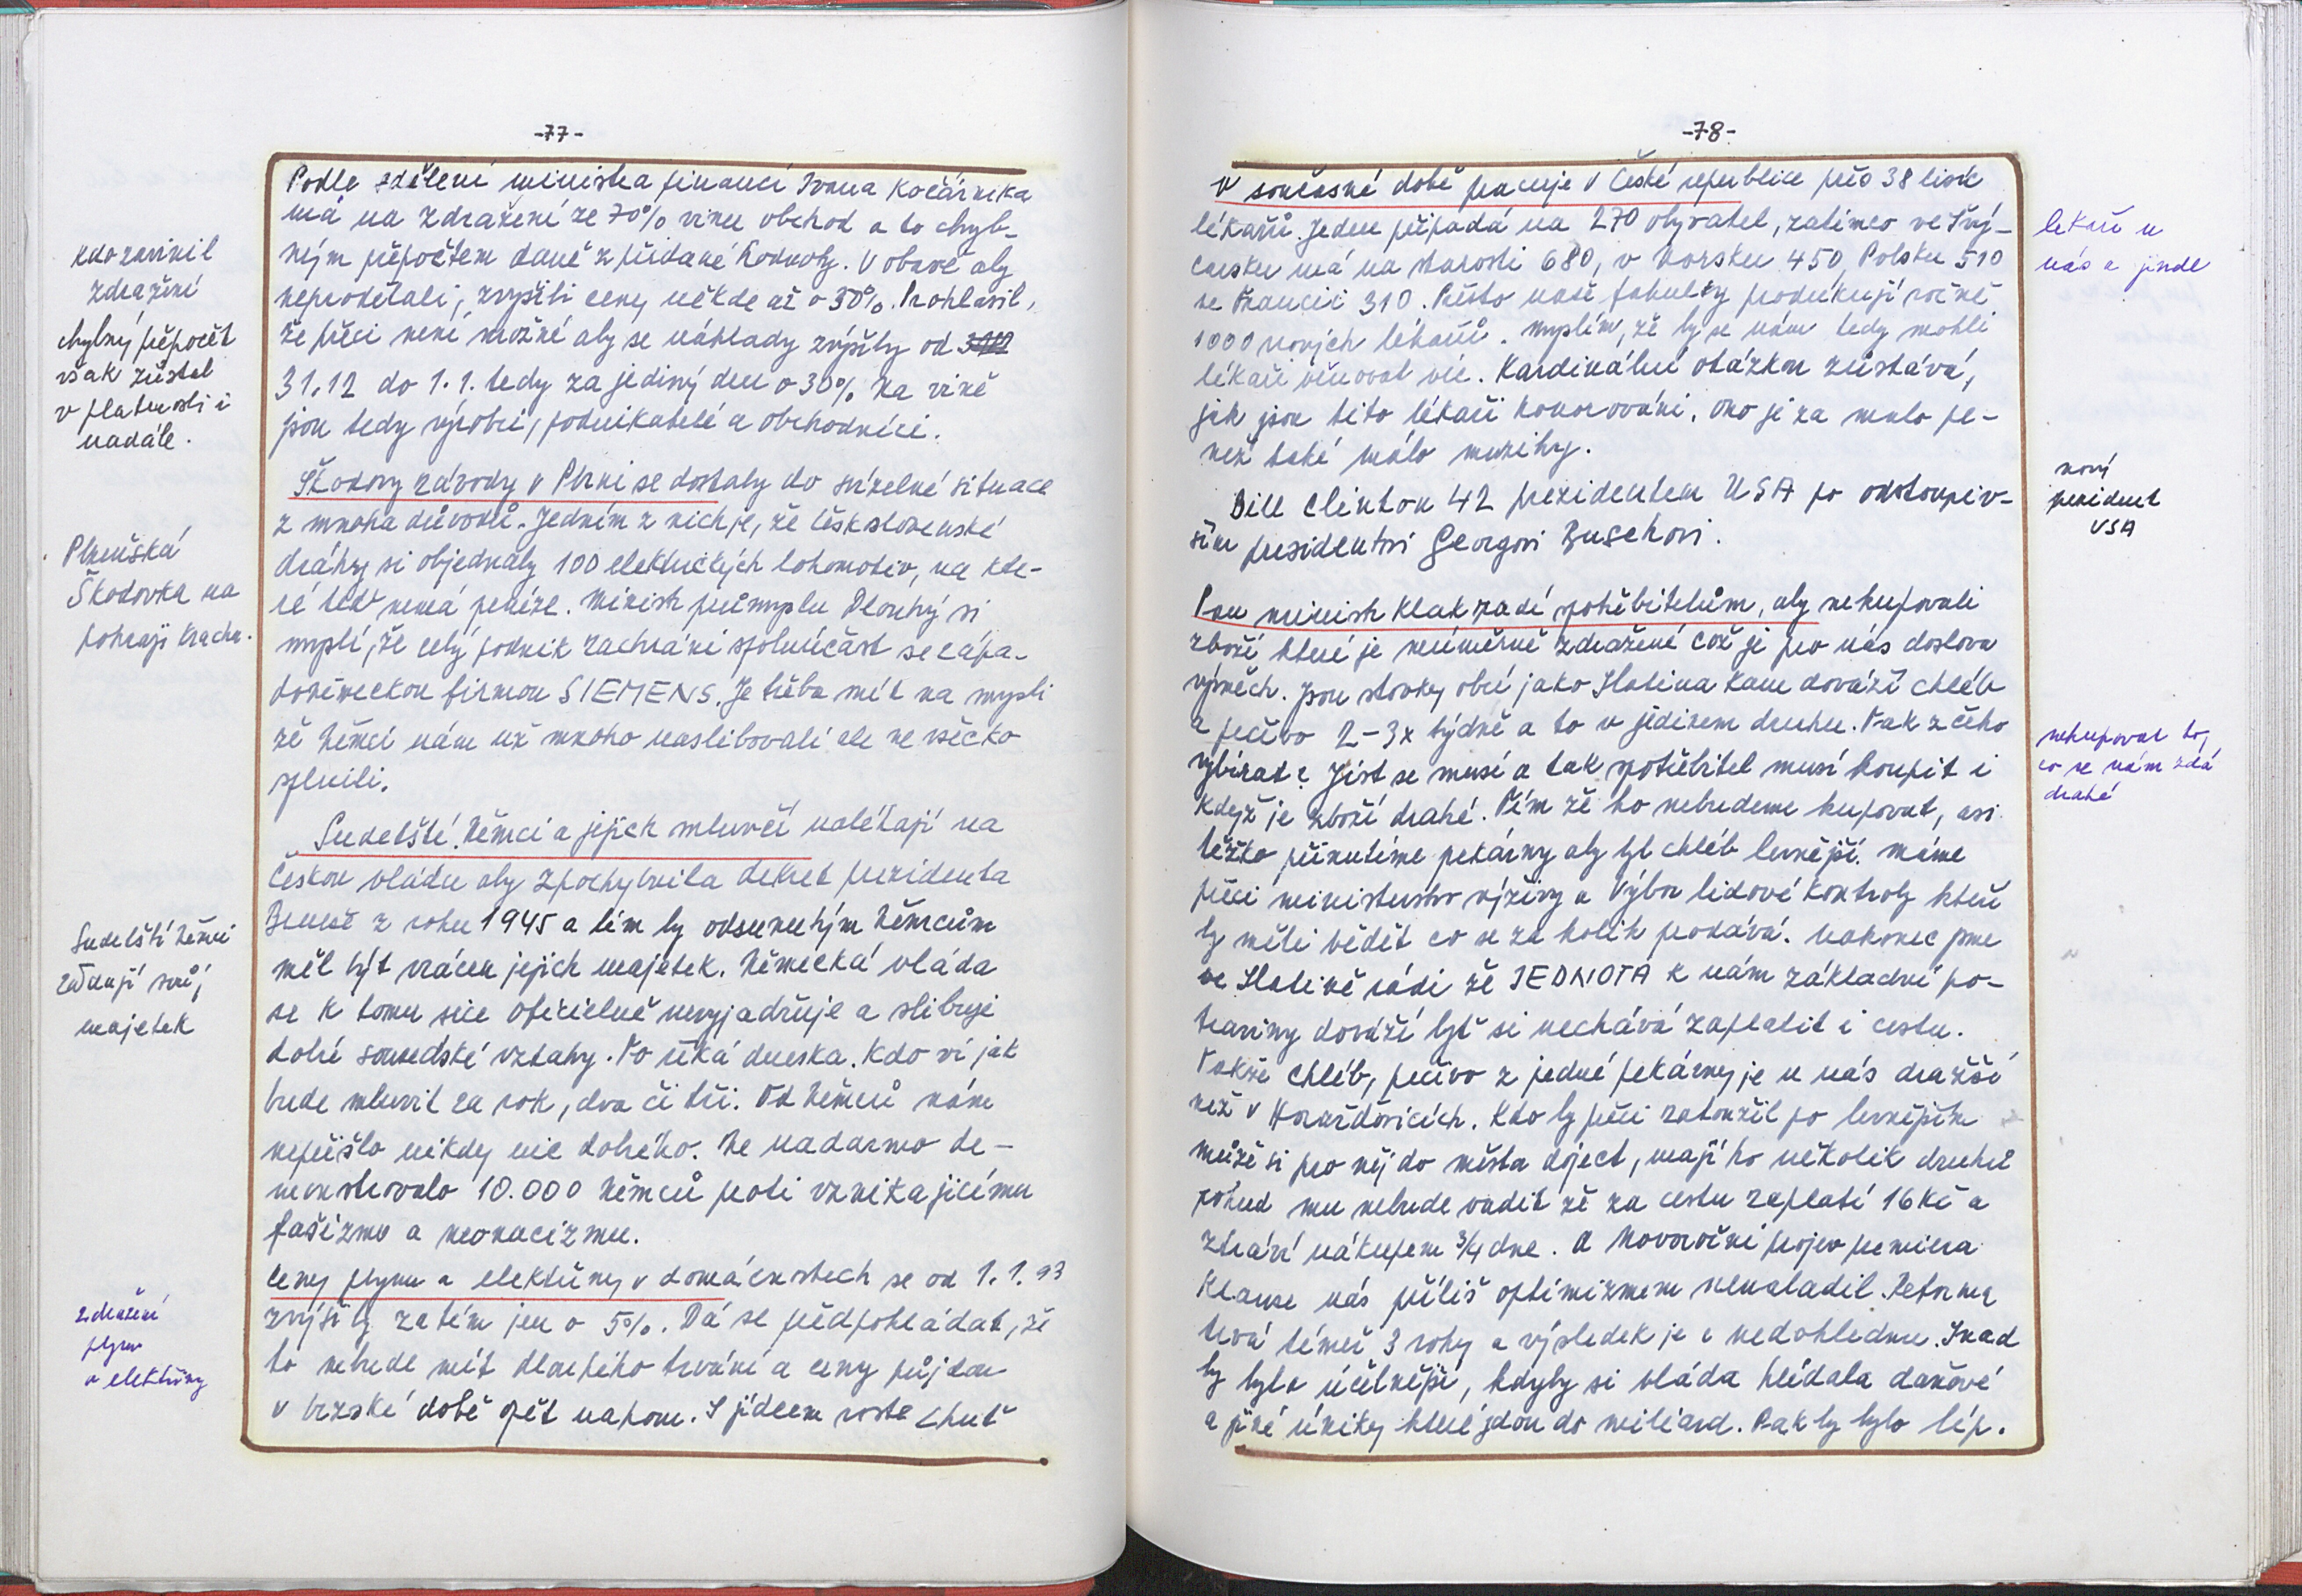 -77-
Podle sdělení ministra financí Ivana Kočárníka
má na zdražení ze 70% vinu obchod a to chyb-
ným přepočtem daně z přidané hodnoty. V obavě aby
neprodělali, zvýšili ceny někde až o 30%. Prohlásil,
že přeci není možné aby se náklady zvýšily od
31.12 do 1.1. tedy za jediný den o 30%. Na vině
jsou tedy výrobci, podnikatelé a obchodníci.
kdo zavinil
zdražení
chybný přepočet
však zůstal
v platnosti i
nadále.
Škodovy závody v Plzni se dostaly do svízelné situace
z mnoha důvodů. Jedním z nich je, že Českslovenské
dráhy si objednaly 100 elektrických lokomotiv, na kte-
ré teď nemá peníze. Ministr průmyslu Dlouhý si
myslí, že celý podnik zachrání spoluúčast se zápa-
doněmeckou firmou SIEMENS. Je třeba mít na mysli
že Němci nám už mnoho naslibovali ale ne všecko
splnili.
Plzeňská
Škodovka na
pokraji krachu.
Sudetští Němci a jejich mluvčí naléhají na
Českou vládu aby zpochybnila dekret prezidenta
Beneše z roku 1945 a tím by odsunutým Němcům
měl být vrácen jejich majetek. Německá vláda
se k tomu sice oficielně nevyjadřuje a slibuje
dobré sousedské vztahy. To říká dneska. Kdo ví jak
bude mluvit za rok, dva či tři. Od Němců nám
nepřišlo nikdy nic dobrého. Ne nadarmo de-
monstrovalo 10.000 Němců proti vznikajícímu
fašizmu a neonacizmu.
Sudetští Němci
žádají svůj
majetek
Ceny plynu a elektřiny v domácnostech se od 1.1.93
zvýšily zatím jen o 5%. Dá se předpokládat, že
to nebude mít dlouhého trvání a ceny půjdou
v brzské době opět nahoru. S jídlem roste chuť
zdražení
plynu
a elektřiny
-78-
V současné době pracuje v České republice přes 38 tisíc
lékařů. Jeden připadá na 270 obyvatel, zatímco ve Švý-
carsku má na starosti 680, v Norsku 450, Polsku 510
ve Francii 310. Přesto naše fakulty produkují ročně
1000 nových lékařů. Myslím, že by se nám tedy mohli
lékaři věnovat víc. Kardinální otázkou zůstává,
jak jsou tito lékaři honorováni. Ono je za málo pe-
něz také málo muziky.
lékaři u
nás a jinde
Bill Clinton 42 prezidentem USA po odstoupiv-
ším presidentovi Georgovi Buschovi.
nový
prezident
USA
Pan ministr Klak radí spotřebitelům, aby nekupovali
zboží které je neúměrně zdražené což je pro nás doslova
výsměch. Jsou stovky obcí jako Slatina kam dováží chléb
a pečivo 2-3x týdně a to v jediném druhu. Pak z čeho
vybírat? Jíst se musí a tak spotřebitel musí koupit i
když je zboží drahé. Tím že ho nebudeme kupovat, asi
těžko přinutíme pekárny aby byl chléb levnější. Máme
přeci ministerstvo výživy a Výbor lidové kontroly kteří
by měli vědět co se za kolik prodává. Nakonec jsme
ve Slatině rádi že JEDNOTA k nám základní po-
traviny dováží byť si nechává zaplatit i cestu.
Takže chléb, pečivo z jedné pekárny je u nás dražší
než v Horažďovicích. Kdo by přeci zatoužil po levnějším
může si pro něj do města doject, mají ho několik druhů
pokud mu nebude vadit že za cestu zaplatí 16 Kč a
ztráví nákupem 3/4 dne. A Novoroční projev premiera
Klause nás příliš optimizmem nenaladil. Reforma
trvá téměř 3 roky a výsledek je v nedohlednu. Snad
by bylo účelnější, kdyby si vláda hlídala daňové
a jiné úniky které jdou do miliard. Pak by bylo líp.
nekupovat to,
co se nám zdá
drahé